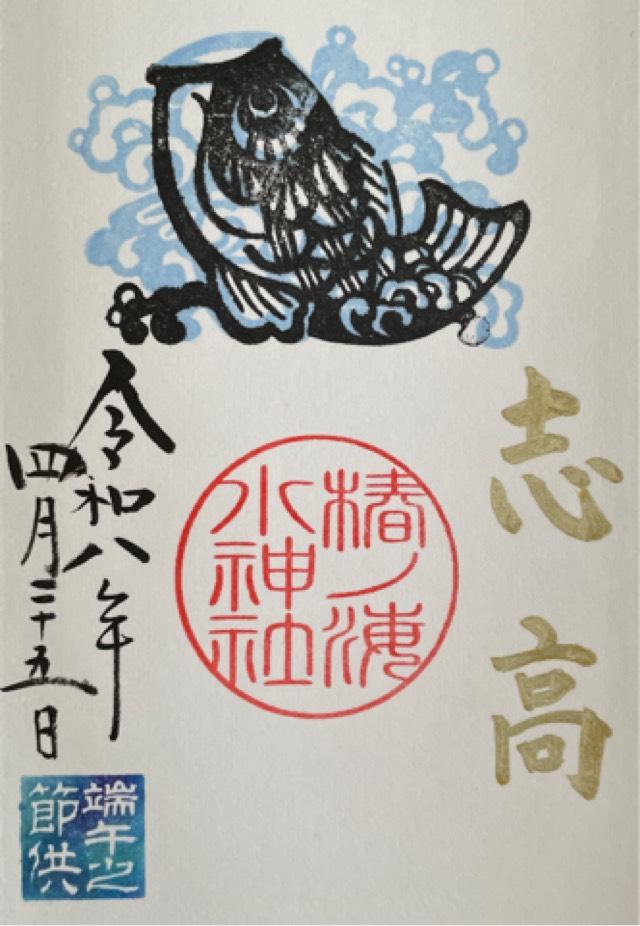 志高
椿ノ海
水神社
令和八年
四月二十五日
端午之
節供